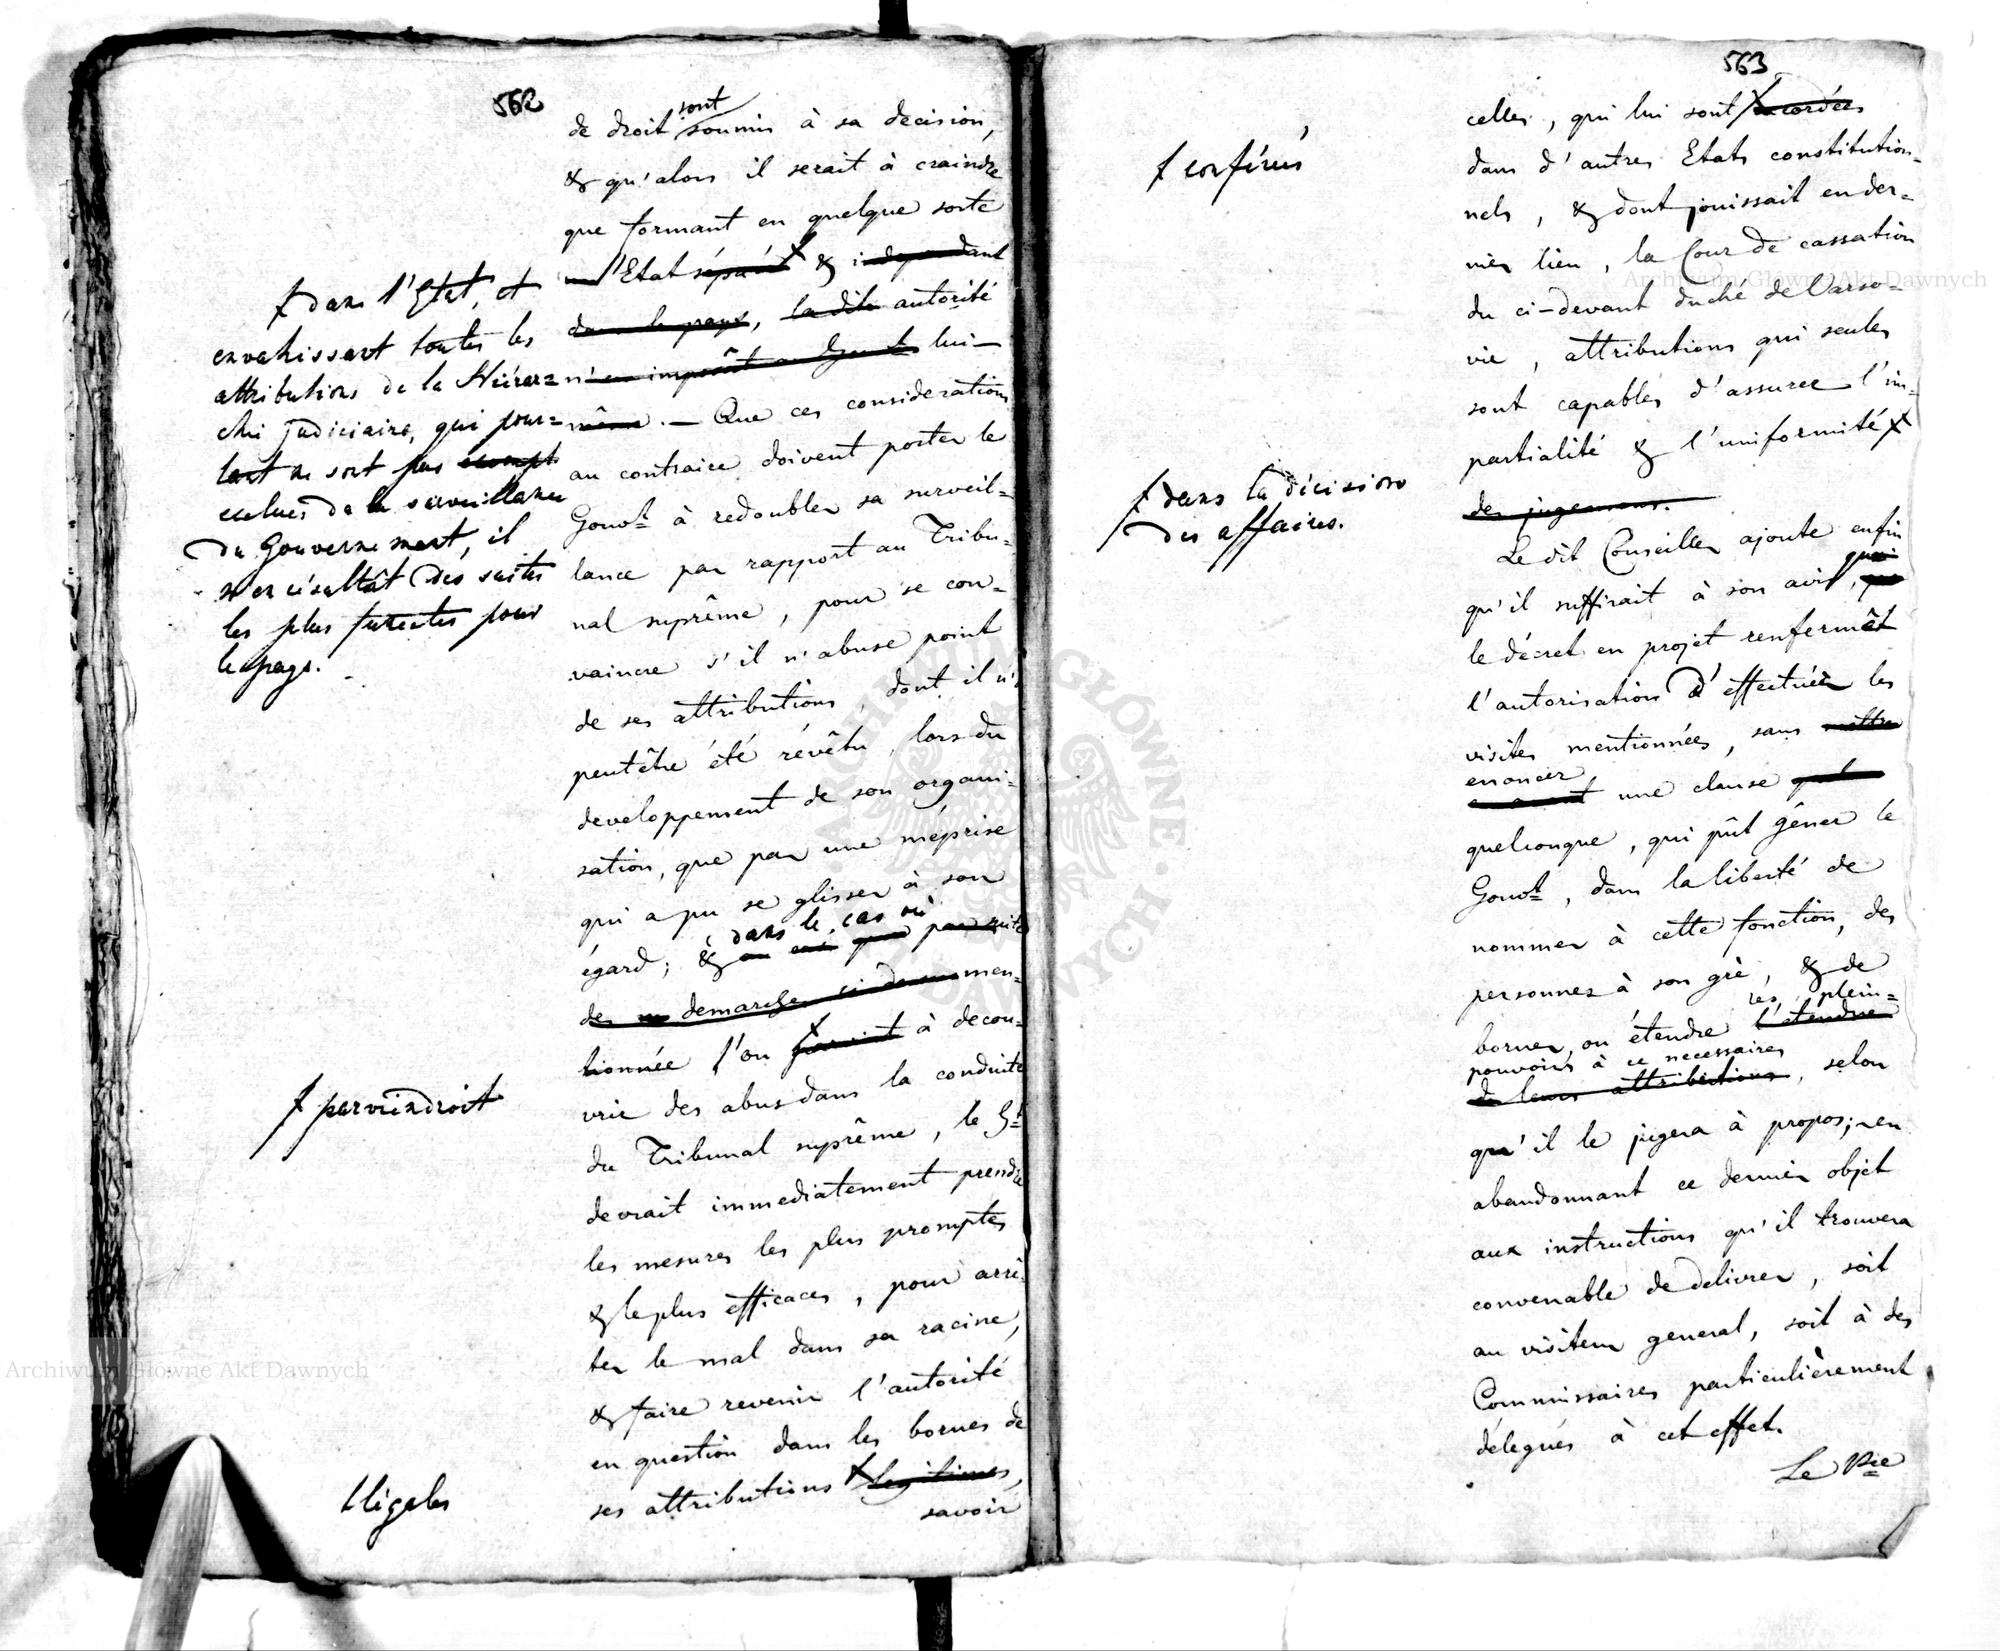 562
de droit sont soumis à sa decision,
& qu'alors il serait à craindre
que formant en quelque sorte
un Etat séparé & independant
dans le pays, la dite autorité
n'en imposât au Gouvt lui-
même. — Que ces considerations
au contraire doivent porter le
Gouvt à redoubler sa surveil=
lance par rapport au Tribu=
nal suprême, pour se con-
vaincre s'il n'abuse point
de ses attributions, dont il n'a
peutêtre été révêtu, lors du
developpement de son organi=
sation, que par une méprise
qui a pu se glisser à son
dans le cas où
égard; & au cas que par suite
des demarches ci-dessus men-
tionnée l'on à decou=
vrir des abus dans la conduite
du Tribunal suprême, le Gt
devrait immediatement prendre
les mesures les plus promptes
& le plus efficaces, pour arrê-
ter le mal dans sa racine,
& faire revenir l'autorité
en question dans les bornes de
ses attributions legitimes,
savoir
ƒ dans l'Etat, et
envahissant toutes les
attributions de la Hiérar=
chie judiciaire, qui pour=
tant ne sont pas exempt
exclues de la surveillance
du Gouvernement, il
n'en résultât des suites
les plus funestes pour
le pays.
ƒ parviendroit
ƒ légales
563
celles, qui lui sont accordées
dans d'autres Etats constitution=
nels, & dont jouissait en der-
nier lieu, la Cour de cassation
du ci-devant duché de Varso-
vie, attributions qui seules
sont capables d'assurer l'im-
partialité & l'uniformité
des jugemens.
Le dit Conseiller ajoute enfin
qu'il suffirait à son avis, que
le décret en projet renfermât
l'autorisation d'effectuer les
visites mentionnées, sans mettre
enoncer
en avant une clause
quelconque, qui pût gêner le
Gouvt, dans la liberté de
nommer à cette fonction, des
personnes à son gré, & de
les plein=
borner, ou étendre l'étendue
pouvoirs à ce necessaires
de leurs attributions, selon
qu'il le jugera à propos; en
abandonnant ce dernier objet
aux instructions qu'il trouvera
convenable de delivrer, soit
au visiteur general, soit à des
Commissaires particulièrement
délegués à cet effet.
Le Pce
ƒ conférés
ƒ dans la décision
des affaires.
Archiwum Główne Akt Dawnych
Archiwum Główne Akt Dawnych
ARCHIWUM GŁÓWNE AKT DAWNYCH